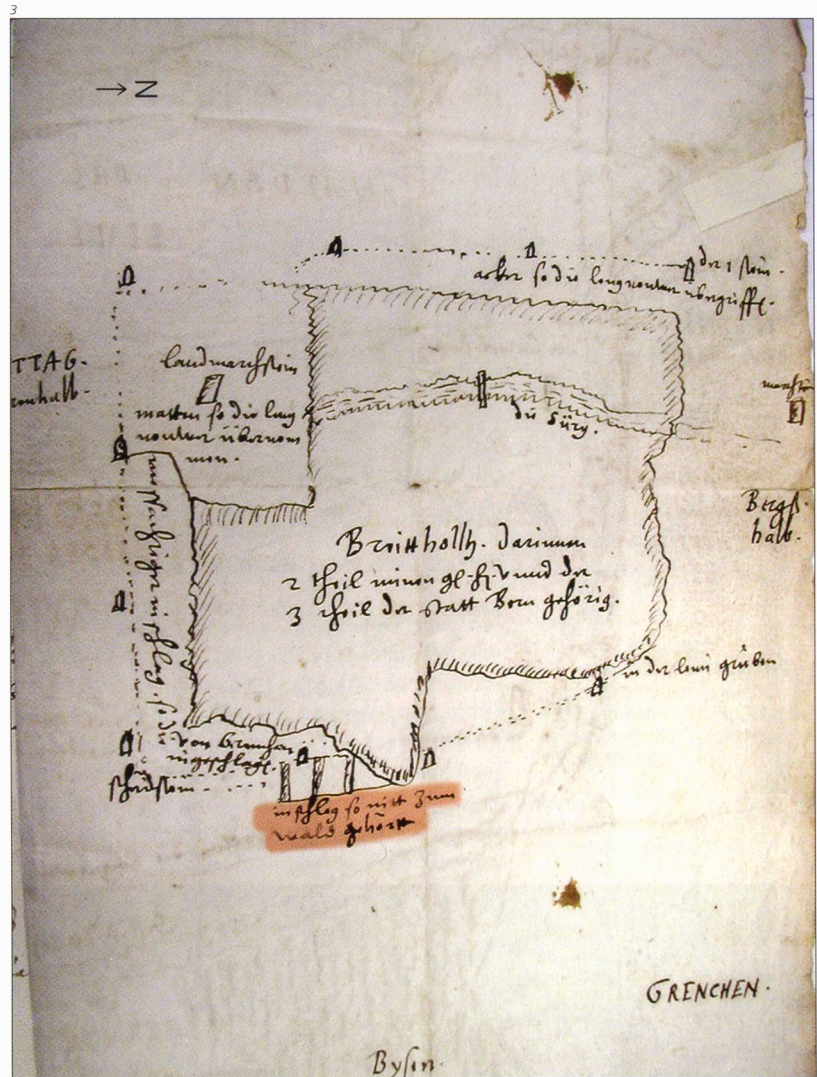 3
→ N
der 1 stein.
acker so die lengnouwer übergriffe.
TTAG.
halb.
landmarchstein
matten so die leng
nouwer übernom
men.
die Sürg.
Bergß
halb.
Breittholtz. darinnen
2 theil minen gl. h. vnnd der
3 theil der statt Bern gehörig.
in der leim gruben
inschlag. so die
von Grenchen
ingeschlage.
scheidstein.
inschlag so nitt zum
wald gehörtt
GRENCHEN.
Bysin.